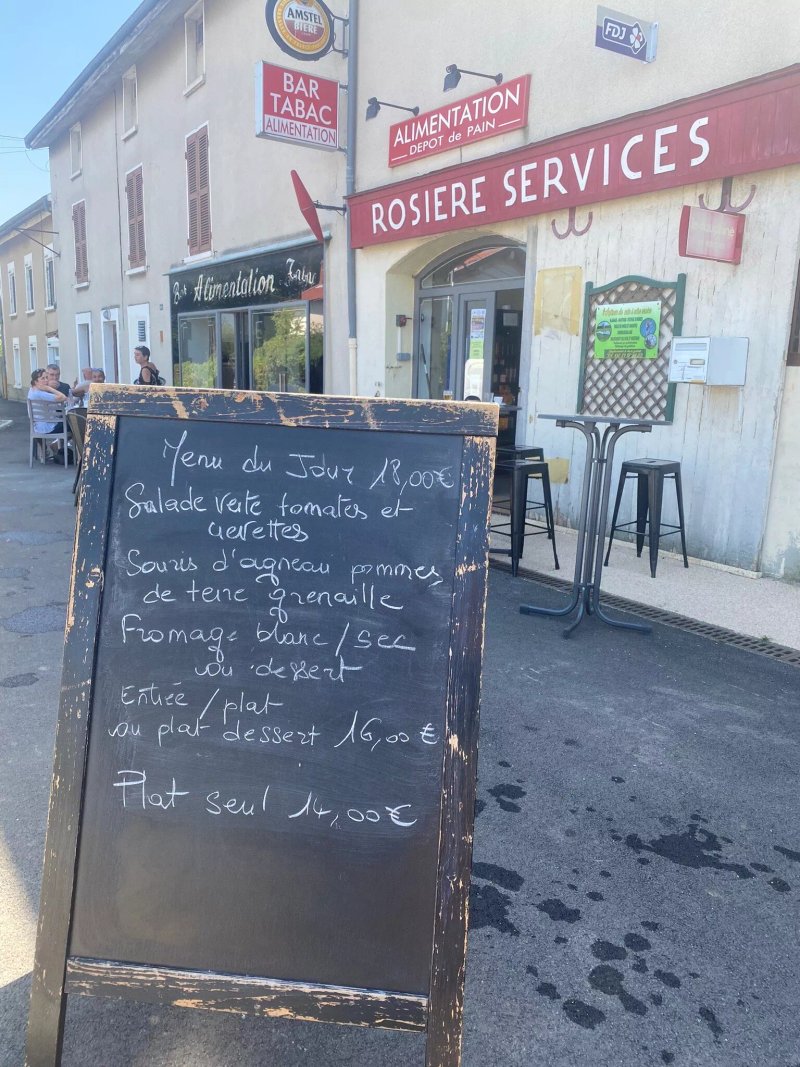 AMSTEL
BIERE
FDJ
BAR
TABAC
ALIMENTATION
ALIMENTATION
DEPOT de PAIN
ROSIERE SERVICES
Bar Alimentation Tabac
Menu du Jour 18,00€
Salade verte tomates et
crevettes
Souris d'agneau pommes
de terre grenaille
Fromage blanc / sec
ou dessert
Entrée / plat
ou plat dessert 16,00 €
Plat seul 14,00€